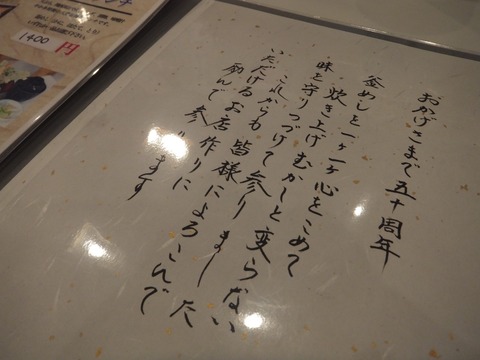 おかげさまで五十周年
釜めしを一ヶ一ヶ心をこめて
炊き上げ むかしと変らない
味を守りつづけて参りました
これからも皆様によろこんで
いただけるお店作りに
励んで参ります
1400円